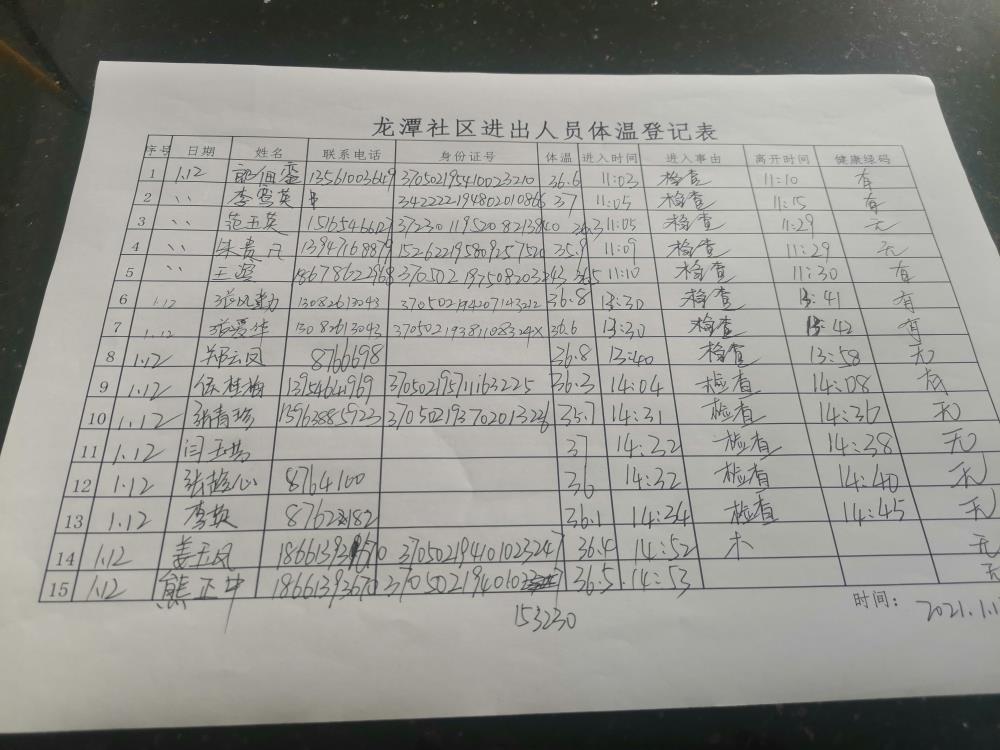 龙潭社区进出人员体温登记表
序号 日期 姓名 联系电话 身份证号 体温 进入时间 进入事由 离开时间 健康绿码
1 1.12 13561003649 370502195410023210 36.6 11:03 检查 11:10 有
2 、、 李雪英 342222194802010866 37 11:05 检查 11:15 有
3 、、 范玉英 15165456627 11:05 检查 11:29 无
4 、、 朱贵凡 13947168879 152622195809257520 35.9 11:09 检查 11:29 无
5 、、 18678622968 36.5 11:10 检查 11:30 有
6 1.12 张凤勤 13082613043 370502194207143212 36.8 13:30 检查 13:41 有
7 1.12 张爱华 13082613043 37050219381108324X 36.6 13:30 检查 13:42 有
8 1.12 郑云凤 8766698 36.8 13:40 检查 13:58 无
9 1.12 徐桂梅 13954641969 370502195711163225 36.3 14:04 检查 14:08
10 1.12 13963885923 35.7 14:31 检查 14:36 无
11 1.12 闫玉芳 37 14:32 检查 14:38 无
12 1.12 8764100 36 14:32 检查 14:40 无
13 1.12 李英 36.1 14:34 检查 14:45 无
14 1.12 姜玉凤 370502194101023247 36.4 14:52 无
15 1.12 熊正中 18661393670 36.5 14:53 无
153230
时间: 2021.1.1